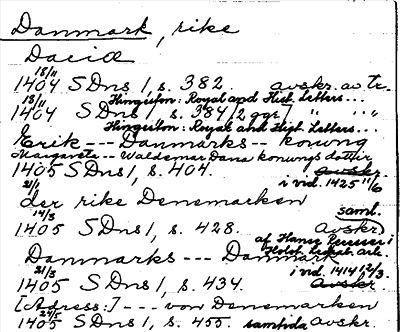 Danmark, rike
Dacia
18/11
1404 SDns 1, s. 382 avskr. av tr.
Hingeston: Royal and Hist. Letters...
18/11
1404 SDns 1, s. 384/2 ggr/ " " "
Hingeston: Royal and Hist. Letters...
Erik --- Danmarks -- konung
Margareta -- Waldemar Dana konungs dotter
1405 SDns 1, s. 404. avskr.
i vid. 1425 11/6
21/1
der rike Denemarken
14/3 saml.
1405 SDns 1, s. 428. avskr.
af Hansg Recesser i
Danmarks --- Danmark
21/3 i vid. 1414 12/3
1405 SDns 1, s. 434. avskr.
[Adress:] --- von Denemarken
24/5
1405 SDns 1, s. 455. samtida avskr.